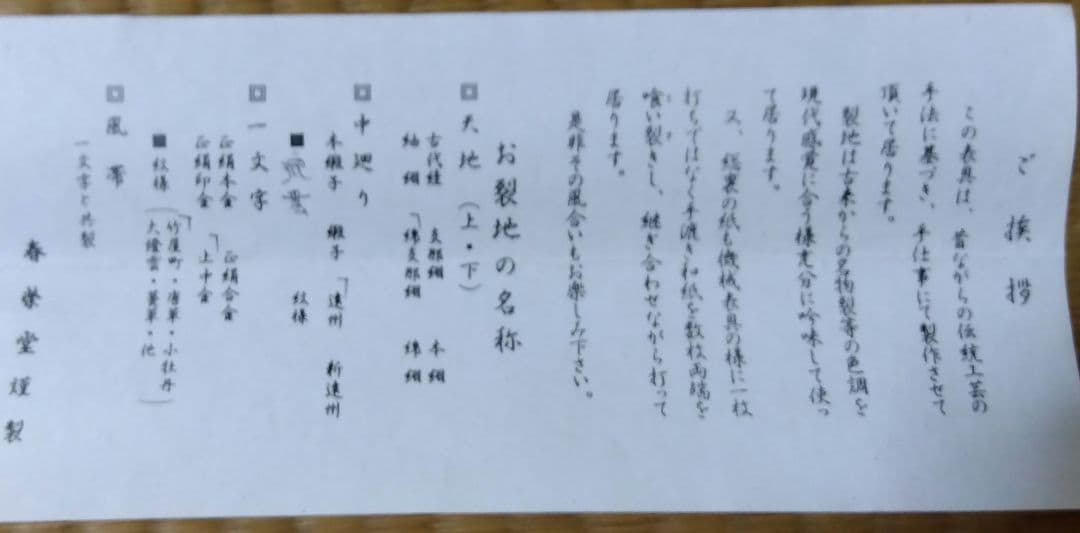 ご挨拶
この表具は、昔ながらの伝統工芸の
手法に基づき、手仕事にて製作させて
頂いて居ります。
製地は古来からの名物製等の色調を
現代感覚に合う様充分に吟味して使っ
て居ります。
又、総裏の紙も機械表具の様に一枚
打ちではなく手漉き和紙を数枚両端を
喰い裂きし、継ぎ合わせながら打って
居ります。
是非その風合いもお楽しみ下さい。
お裂地の名称
回 天地(上・下)
古代 支那絹 本絹
紬 絹 絹
回 中廻り
本緞子 緞子 遠州 新遠州
■ 紋様
回 一文字
正絹本金 正絹合金
正絹印金 上中金
■ 紋様(竹屋町・唐草・小牡丹
大燈雲・ ・他)
回 風帯
一文字と共裂
春栄堂謹製